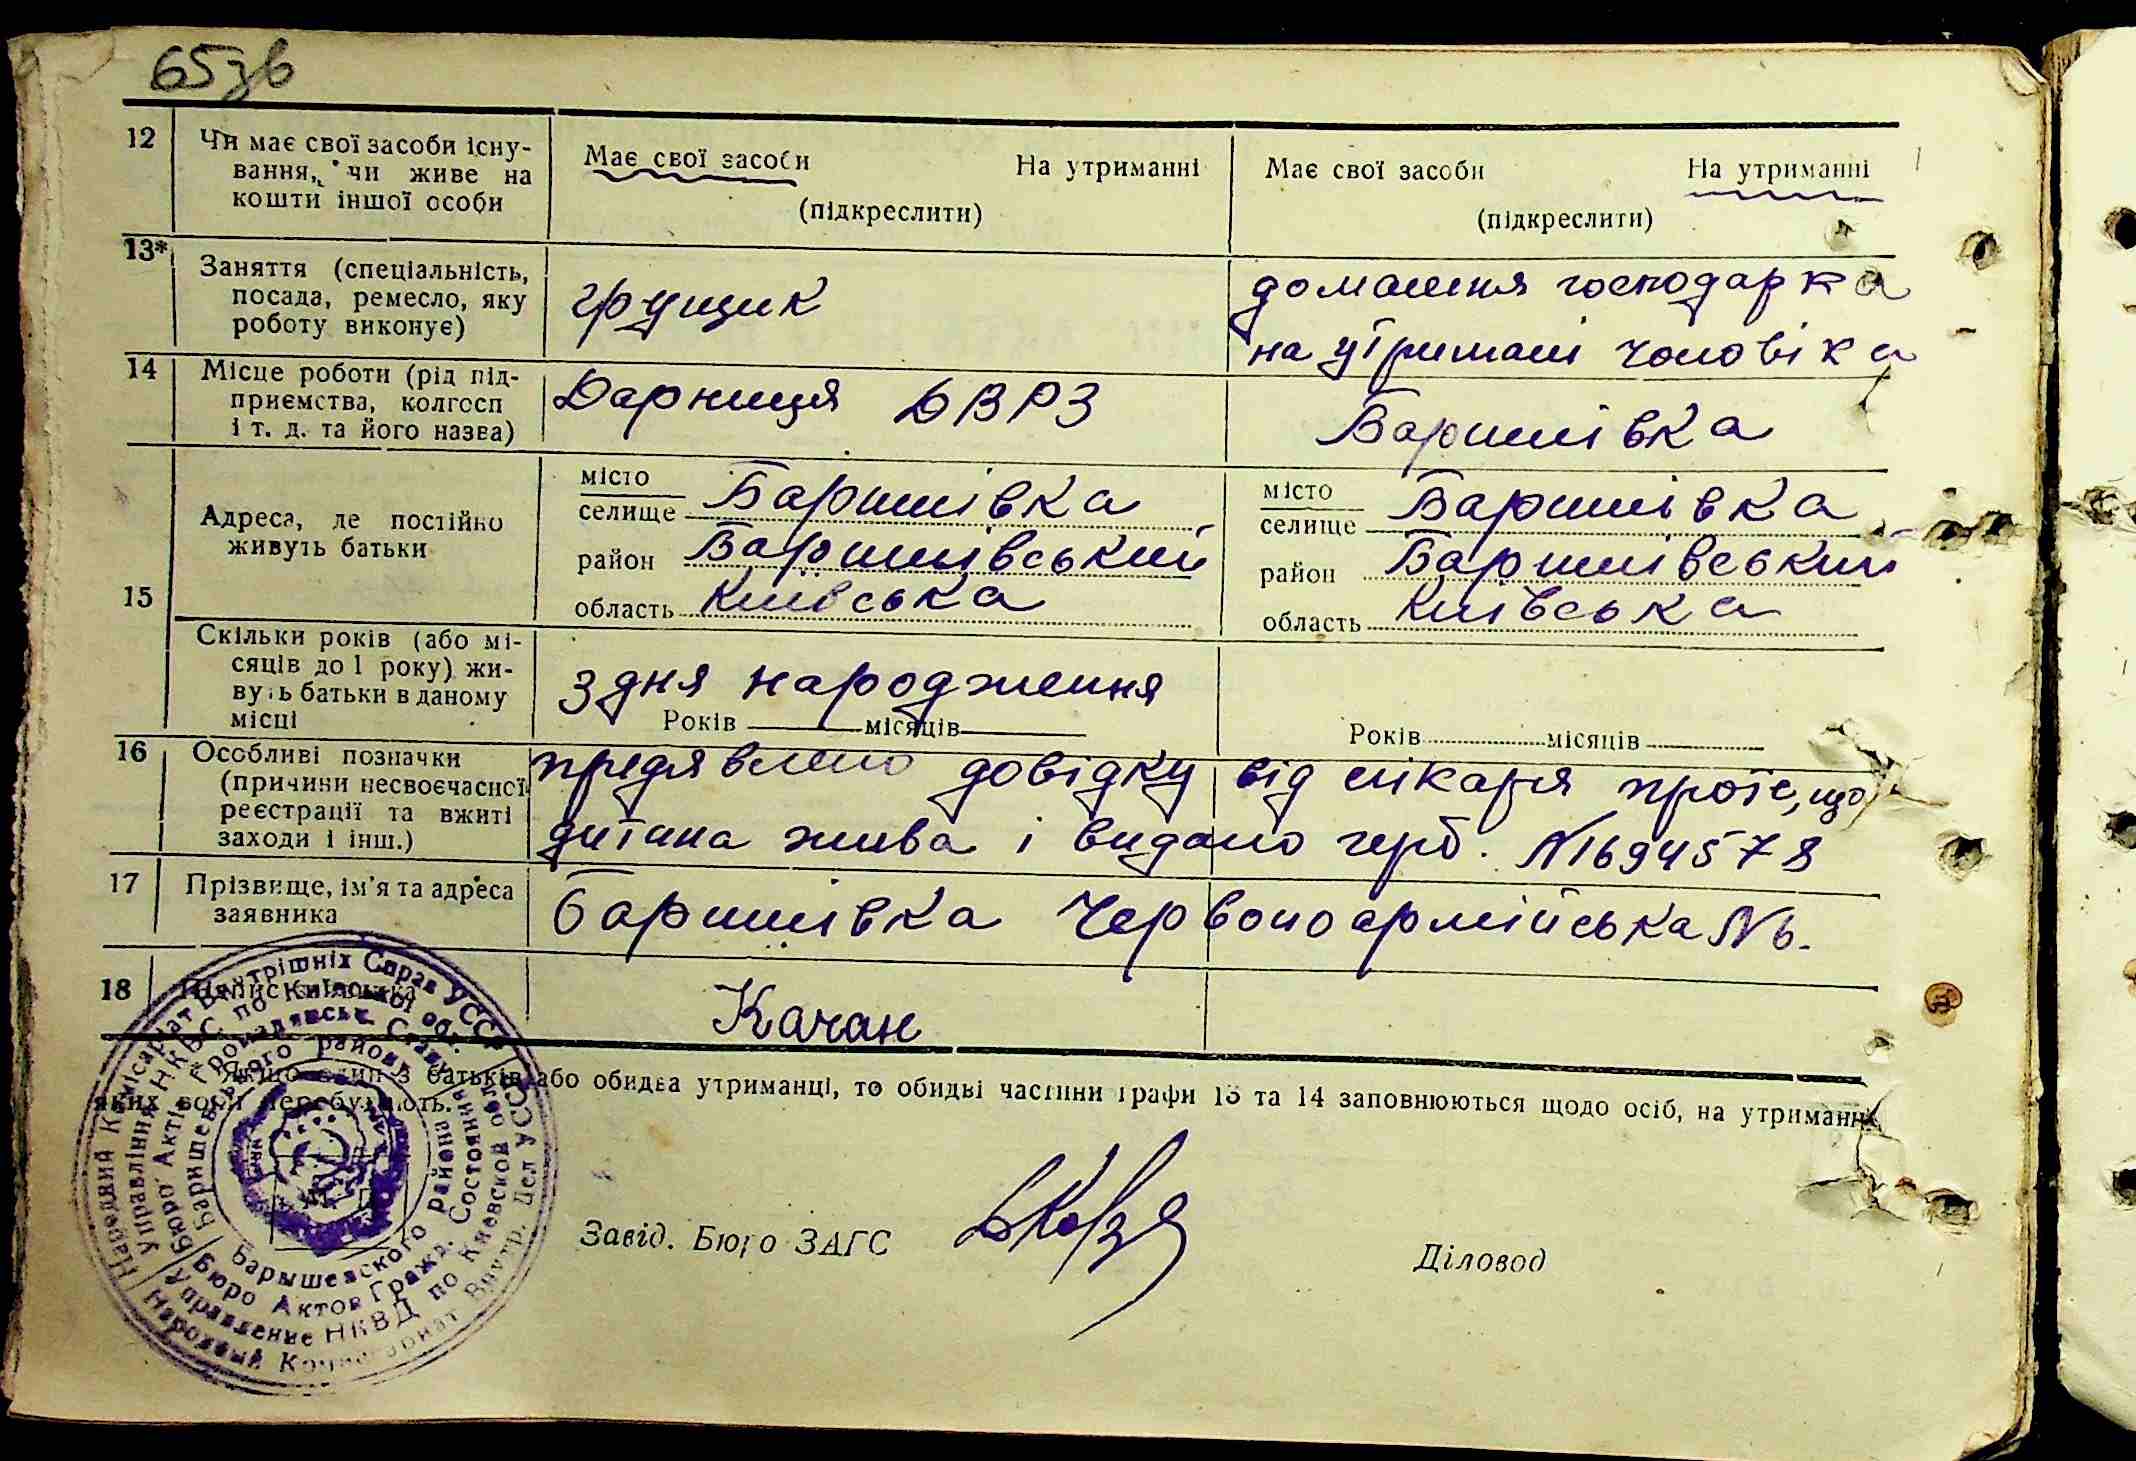 65зв
12 Чи має свої засоби існу- Має свої засоби На утриманні Має свої засоби На утриманні
вання, чи живе на
кошти іншої особи (підкреслити) (підкреслити)
13* Заняття (спеціальність, грущик домашня господарка
посада, ремесло, яку
роботу виконує) на утримані чоловіка
14 Місце роботи (рід під- Дарниця ДВРЗ Баришівка
приємства, колгосп
і т. д. та його назва)
15 Адреса, де постійно місто Баришівка місто Баришівка
живуть батьки селище селище
район Баришівський район Баришівський
область Київська область Київська
Скільки років (або мі- з дня народження
сяців до 1 року) жи-
вуть батьки в даному
місці Років місяців Років місяців
16 Особливі позначки предявлено довідку від лікаря проте, що
(причини несвоєчасної
реєстрації та вжиті дитина жива і видано герб. N1694578
заходи і інш.)
17 Прізвище, ім'я та адреса Баришівка Червоноармійська N6.
заявника
18 Підпис заявника Качан
* Якщо один з батьків або обидва утриманці, то обидві частини графи 13 та 14 заповнюються щодо осіб, на утриманні
яких вони перебувають.
Завід. Бюро ЗАГС Діловод
Народний Комісаріат Внутрішніх Справ УССР
Управління НКВС по Київській обл.
Бюро Актів Громадянськ. Стану
Баришевського району
Барышевского района
Бюро Актов Гражд. Состояния
Управление НКВД по Киевской обл.
Народный Комиссариат Внутр. Дел УССР